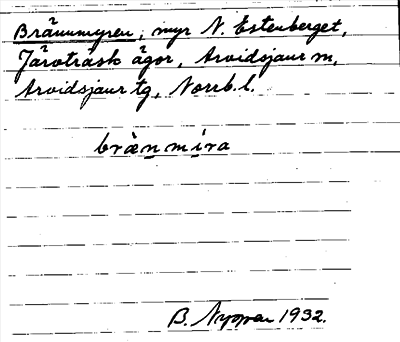 Brännmyren, myr N. Estenberget,
Järvträsk ägor, Arvidsjaur m,
Arvidsjaur tg, Norrb. l.
brænmira
B. 1932.